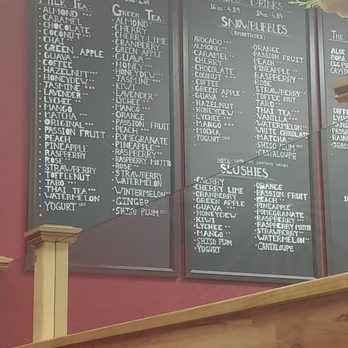 MILK TEA:
ALMOND
CARAMEL
CHOCOLATE
COCONUT
CHAI
GREEN APPLE
GUAVA
COFFEE
HAZELNUT
HONEYDEW
JASMINE
LAVENDER
LYCHEE
MANGO
MATCHA
ORIGINAL
PASSION FRUIT
PEACH
PINEAPPLE
RASPBERRY
ROSE
STRAWBERRY
TOFFEENUT
TARO
THAI TEA
WATERMELON
YOGURT
GREEN TEA:
ALMOND
CHERRY
CHERRY LIME
CRANBERRY
GREEN APPLE
GUAVA
HONEY
HONEYDEW
JASMINE
KIWI
LAVENDER
LYCHEE
MANGO
ORANGE
PASSION FRUIT
PEACH
POMEGRANATE
PINEAPPLE
RASPBERRY
RASPBERRY MOJITO
ROSE
STRAWBERRY
WATERMELON
WINTERMELON
GINGER
SHISO PLUM
DRINKS
16 oz. 4.29
24oz 4.89
SNOWBUBBLES
(SMOOTHIES)
AVOCADO
ALMOND
CARAMEL
CHERRY
CHOCOLATE
COCONUT
COFFEE
GREEN APPLE
GUAVA
HAZELNUT
HONEYDEW
KIWI
LYCHEE
MANGO
MOCHA
YOGURT
ORANGE
PASSION FRUIT
PEACH
PINEAPPLE
RASPBERRY
ROSE
STRAWBERRY
TOFFEE NUT
TARO
THAI TEA
VANILLA
WATERMELON
WHITE CHOCOLATE
MATCHA
SHISO PLUM
CANTALOUPE
SLUSHIES
CHERRY
CHERRY LIME
CRANBERRY
GREEN APPLE
GUAVA
HONEYDEW
KIWI
LYCHEE
MANGO
SHISO PLUM
YOGURT
ORANGE
PASSION FRUIT
PEACH
PINEAPPLE
POMEGRANATE
RASPBERRY
RASPBERRY
STRAWBERRY
WATERMELON
CANTALOUPE